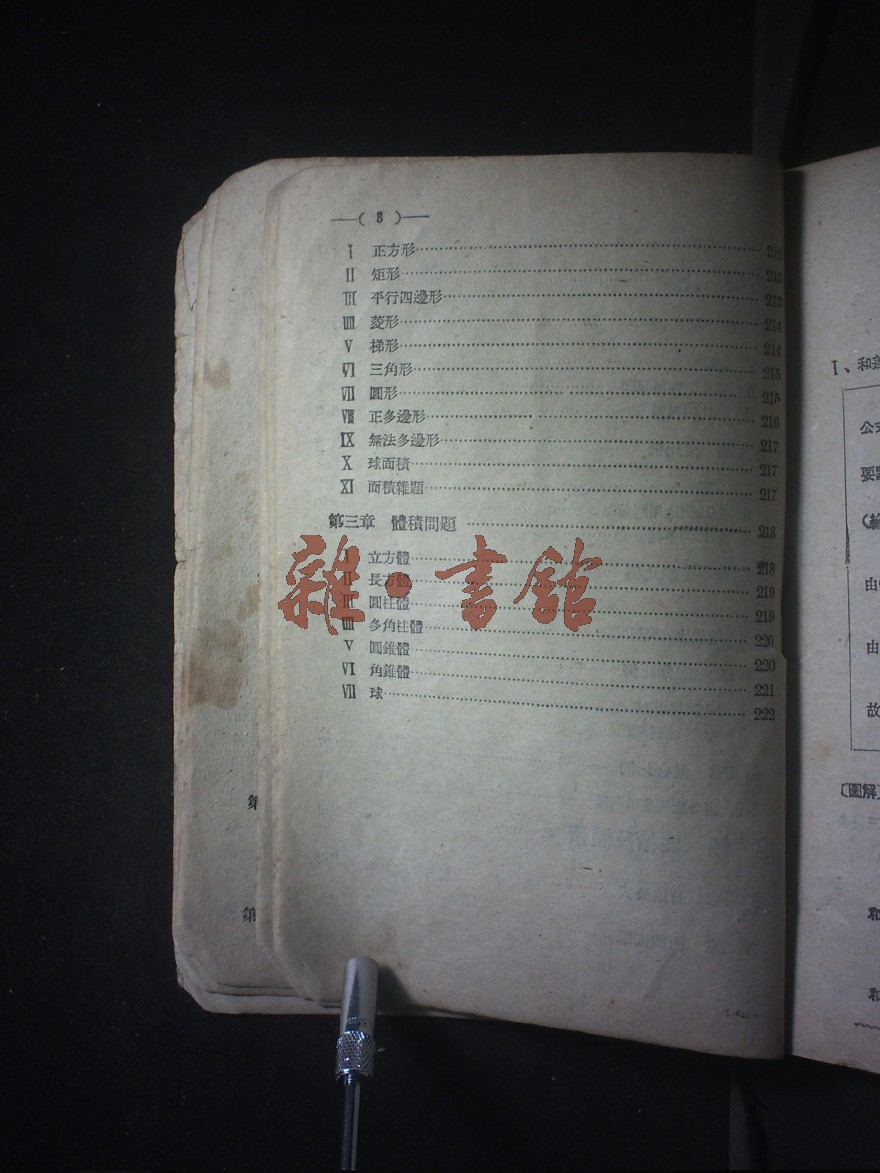 —( 8 )—
I 正方形 212
II 矩形 213
III 平行四邊形 213
IIII 菱形 214
V 梯形 214
VI 三角形 215
VII 圓形 215
VIII 正多邊形 216
IX 無法多邊形 217
X 球面積 217
XI 面積雜題 217
第三章 體積問題 218
I 立方體 218
II 長方體 219
III 圓柱體 219
IIII 多角柱體 220
V 圓錐體 220
VI 角錐體 221
VII 球 222
雜·書館
第
第
I、和
公
要
由
由
故
〔圖解〕
和
和